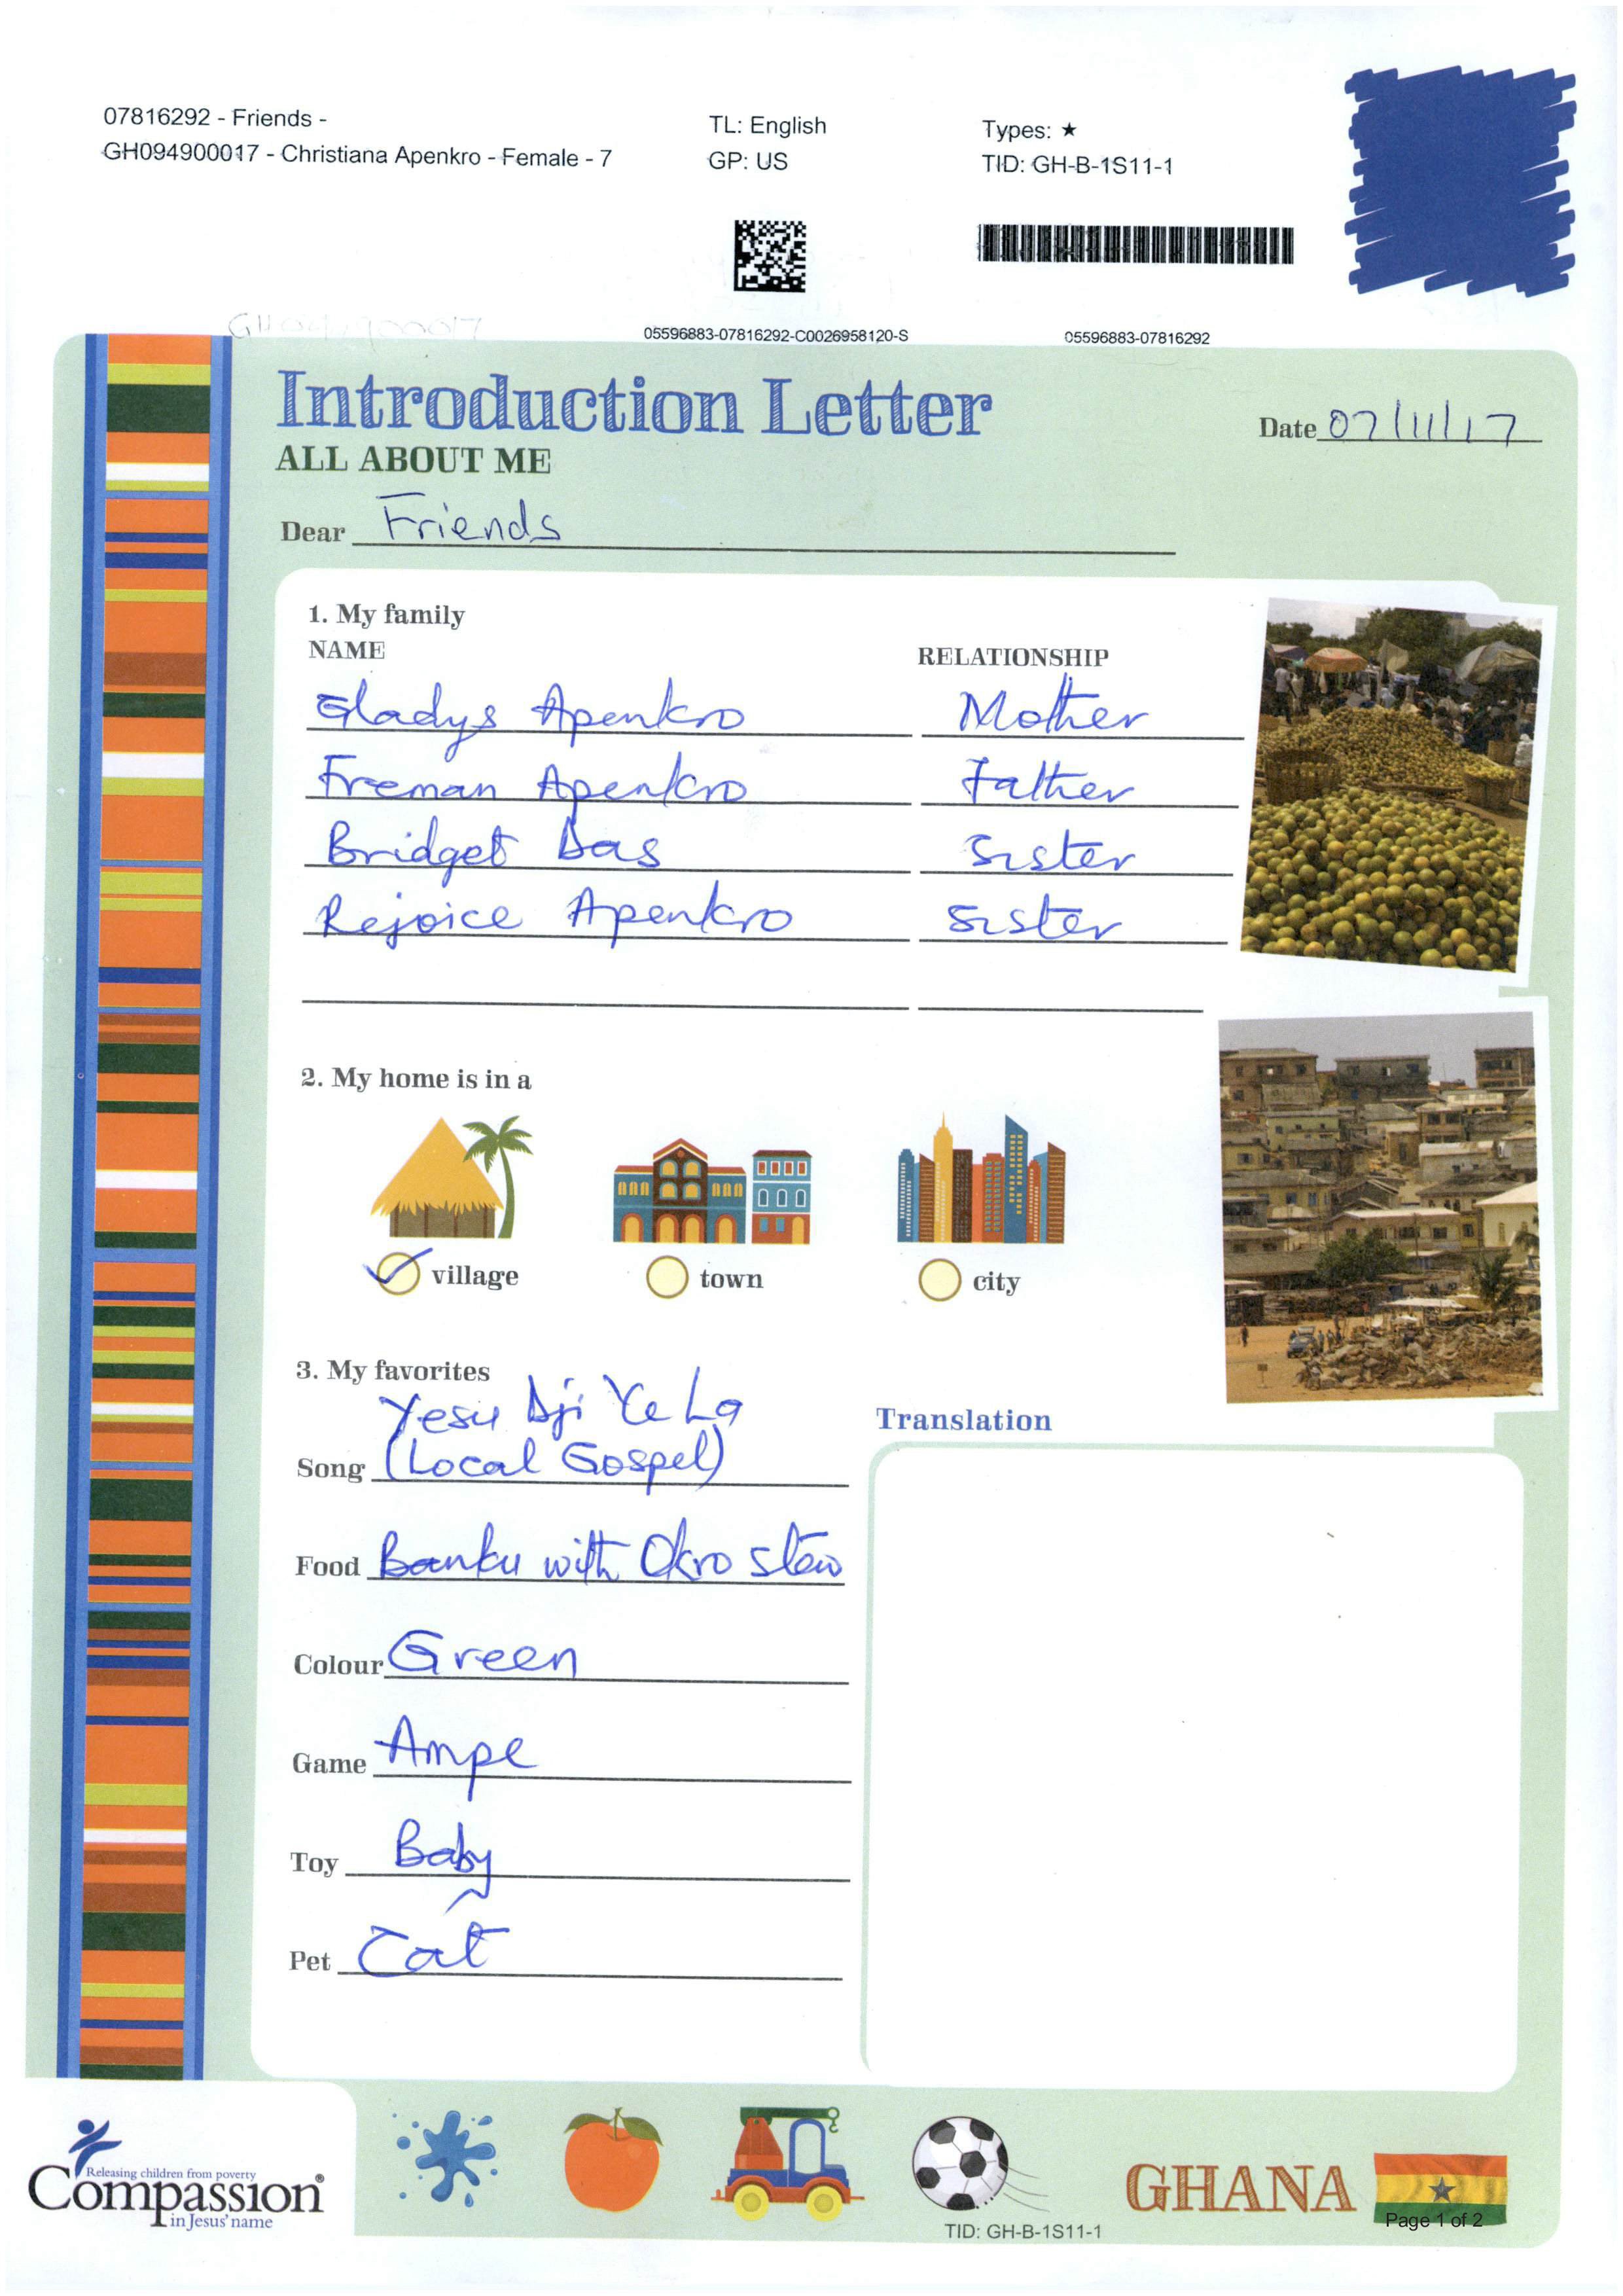 07816292 - Friends -
GH094900017 - Christiana Apenkro - Female - 7
TL: English
GP: US
Types: ★
TID: GH-B-1S11-1
GH094900017
05596883-07816292-C0026958120-S
05596883-07816292
Introduction Letter
ALL ABOUT ME
Date 07/11/17
Dear Friends
1. My family
NAME RELATIONSHIP
Gladys Apenkro Mother
Freman Apenkro Father
Bridget Das Sister
Rejoice Apenkro Sister
2. My home is in a
village town city
3. My favorites
Yesu Dji Ye La
Song (Local Gospel)
Food Banku with Okro stew
Colour Green
Game Ampe
Toy Baby
Pet Cat
Translation
Releasing children from poverty
Compassion®
in Jesus' name
GHANA
Page 1 of 2
TID: GH-B-1S11-1